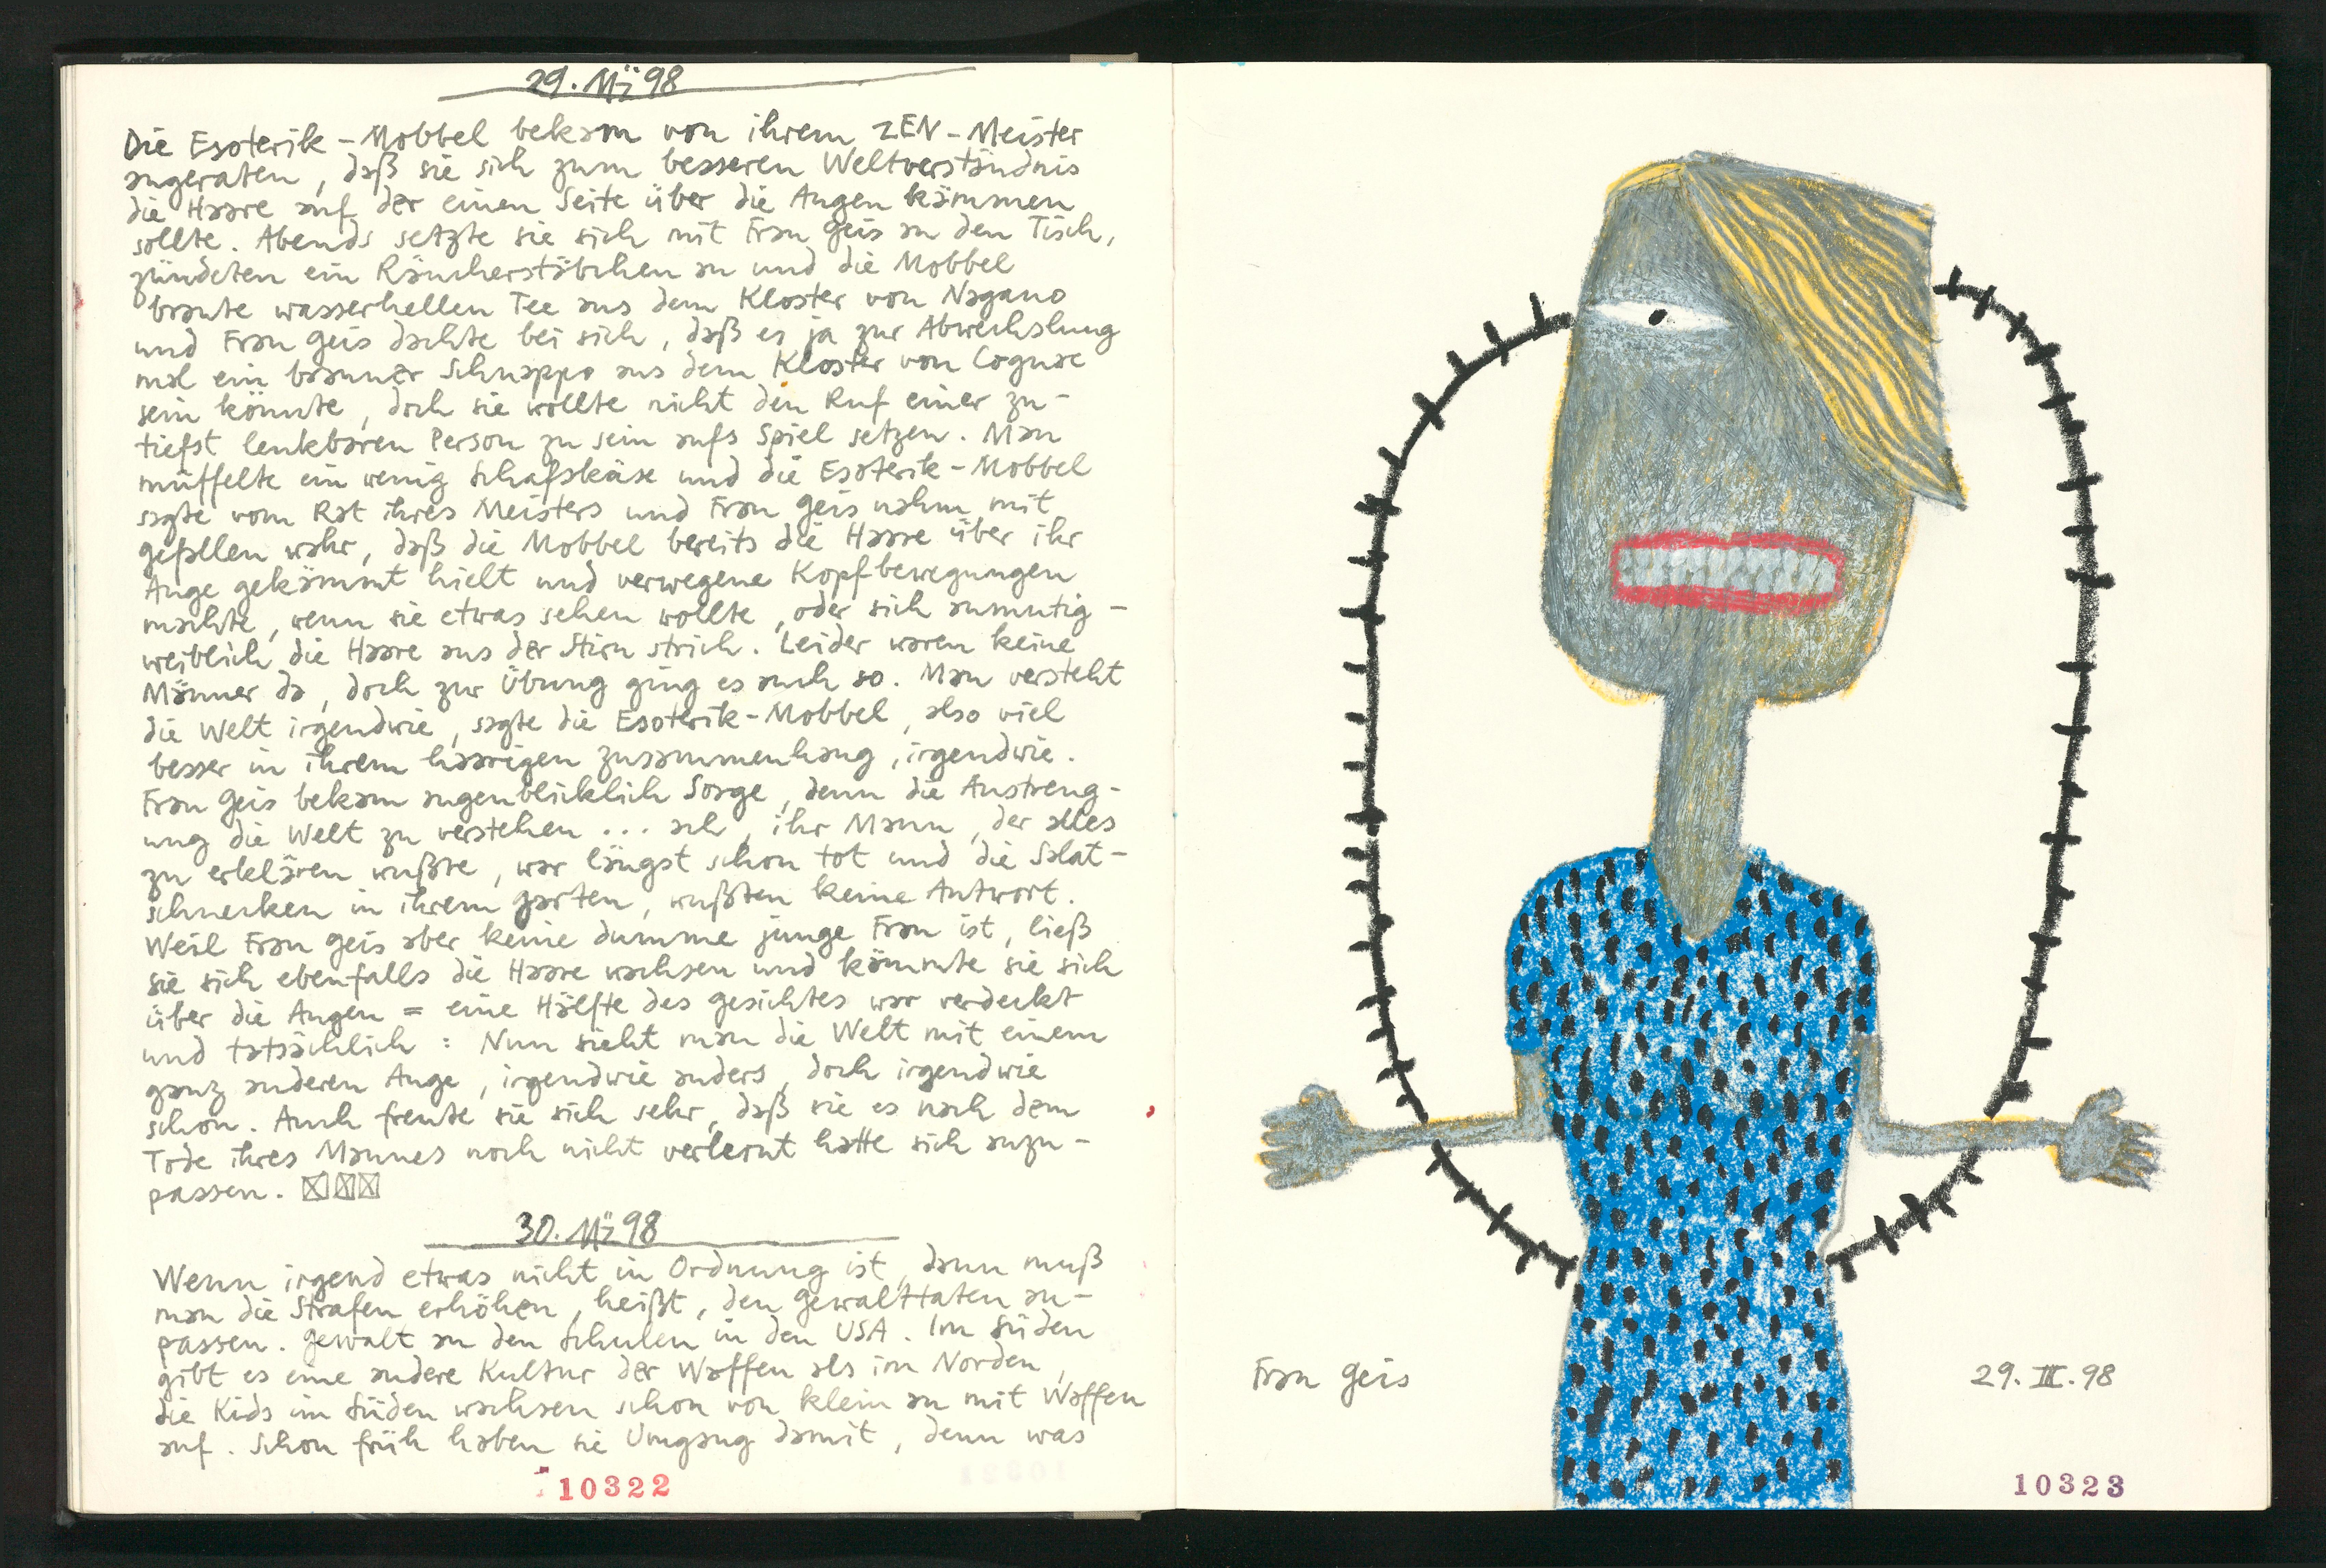 29. Mä 98
Die Esoterik-Mobbel bekam von ihrem ZEN-Meister
angeraten, daß sie sich zum besseren Weltverständnis
die Haare auf der einen Seite über die Augen kämmen
sollte. Abends setzte sie sich mit Frau Geis an den Tisch,
zündeten ein Räucherstäbchen an und die Mobbel
braute wasserhellen Tee aus dem Kloster von Nagano
und Frau Geis dachte bei sich, daß es ja zur Abwechslung
mal ein brauner Schnappo aus dem Kloster von Cognac
sein könnte, doch sie wollte nicht den Ruf einer zu-
tiefst lenkbaren Person zu sein aufs Spiel setzen. Man
müffelte ein wenig Schafskäse und die Esoterik-Mobbel
sagte vom Rat ihres Meisters und Frau Geis nahm mit
gefallen wahr, daß die Mobbel bereits die Haare über ihr
Auge gekämmt hielt und verwegene Kopfbewegungen
machte, wenn sie etwas sehen wollte, oder sich anmutig-
weiblich die Haare aus der Stirn strich. Leider waren keine
Männer da, doch zur Übung ging es auch so. Man versteht
die Welt irgendwie, sagte die Esoterik-Mobbel, also viel
besser in ihrem haarigen zusammenhang, irgendwie.
Frau Geis bekam augenblicklich Sorge, denn die Anstreng-
ung die Welt zu verstehen ... ach, ihr Mann, der alles
zu erklären wußte, war längst schon tot und die Salat-
schnecken in ihrem garten, wußten keine Antwort.
Weil Frau Geis aber keine dumme junge Frau ist, ließ
sie sich ebenfalls die Haare wachsen und kämmte sie sich
über die Augen = eine Hälfte des gesichtes war verdeckt
und tatsächlich : Nun sieht man die Welt mit einem
ganz anderen Auge, irgendwie anders, doch irgendwie
schon. Auch freute sie sich sehr, daß sie es nach dem
Tode ihres Mannes noch nicht verlernt hatte sich anzu-
passen.
30. Mä 98
Wenn irgend etwas nicht in Ordnung ist, dann muß
man die Strafen erhöhen, heißt, den gewalttaten an-
passen. Gewalt an den Schulen in den USA. Im Süden
gibt es eine andere Kultur der Waffen als im Norden,
die Kids im Süden wachsen schon von klein an mit Waffen
auf. Schon früh haben sie Umgang damit, denn was
10322
Frau Geis
29. III. 98
10323